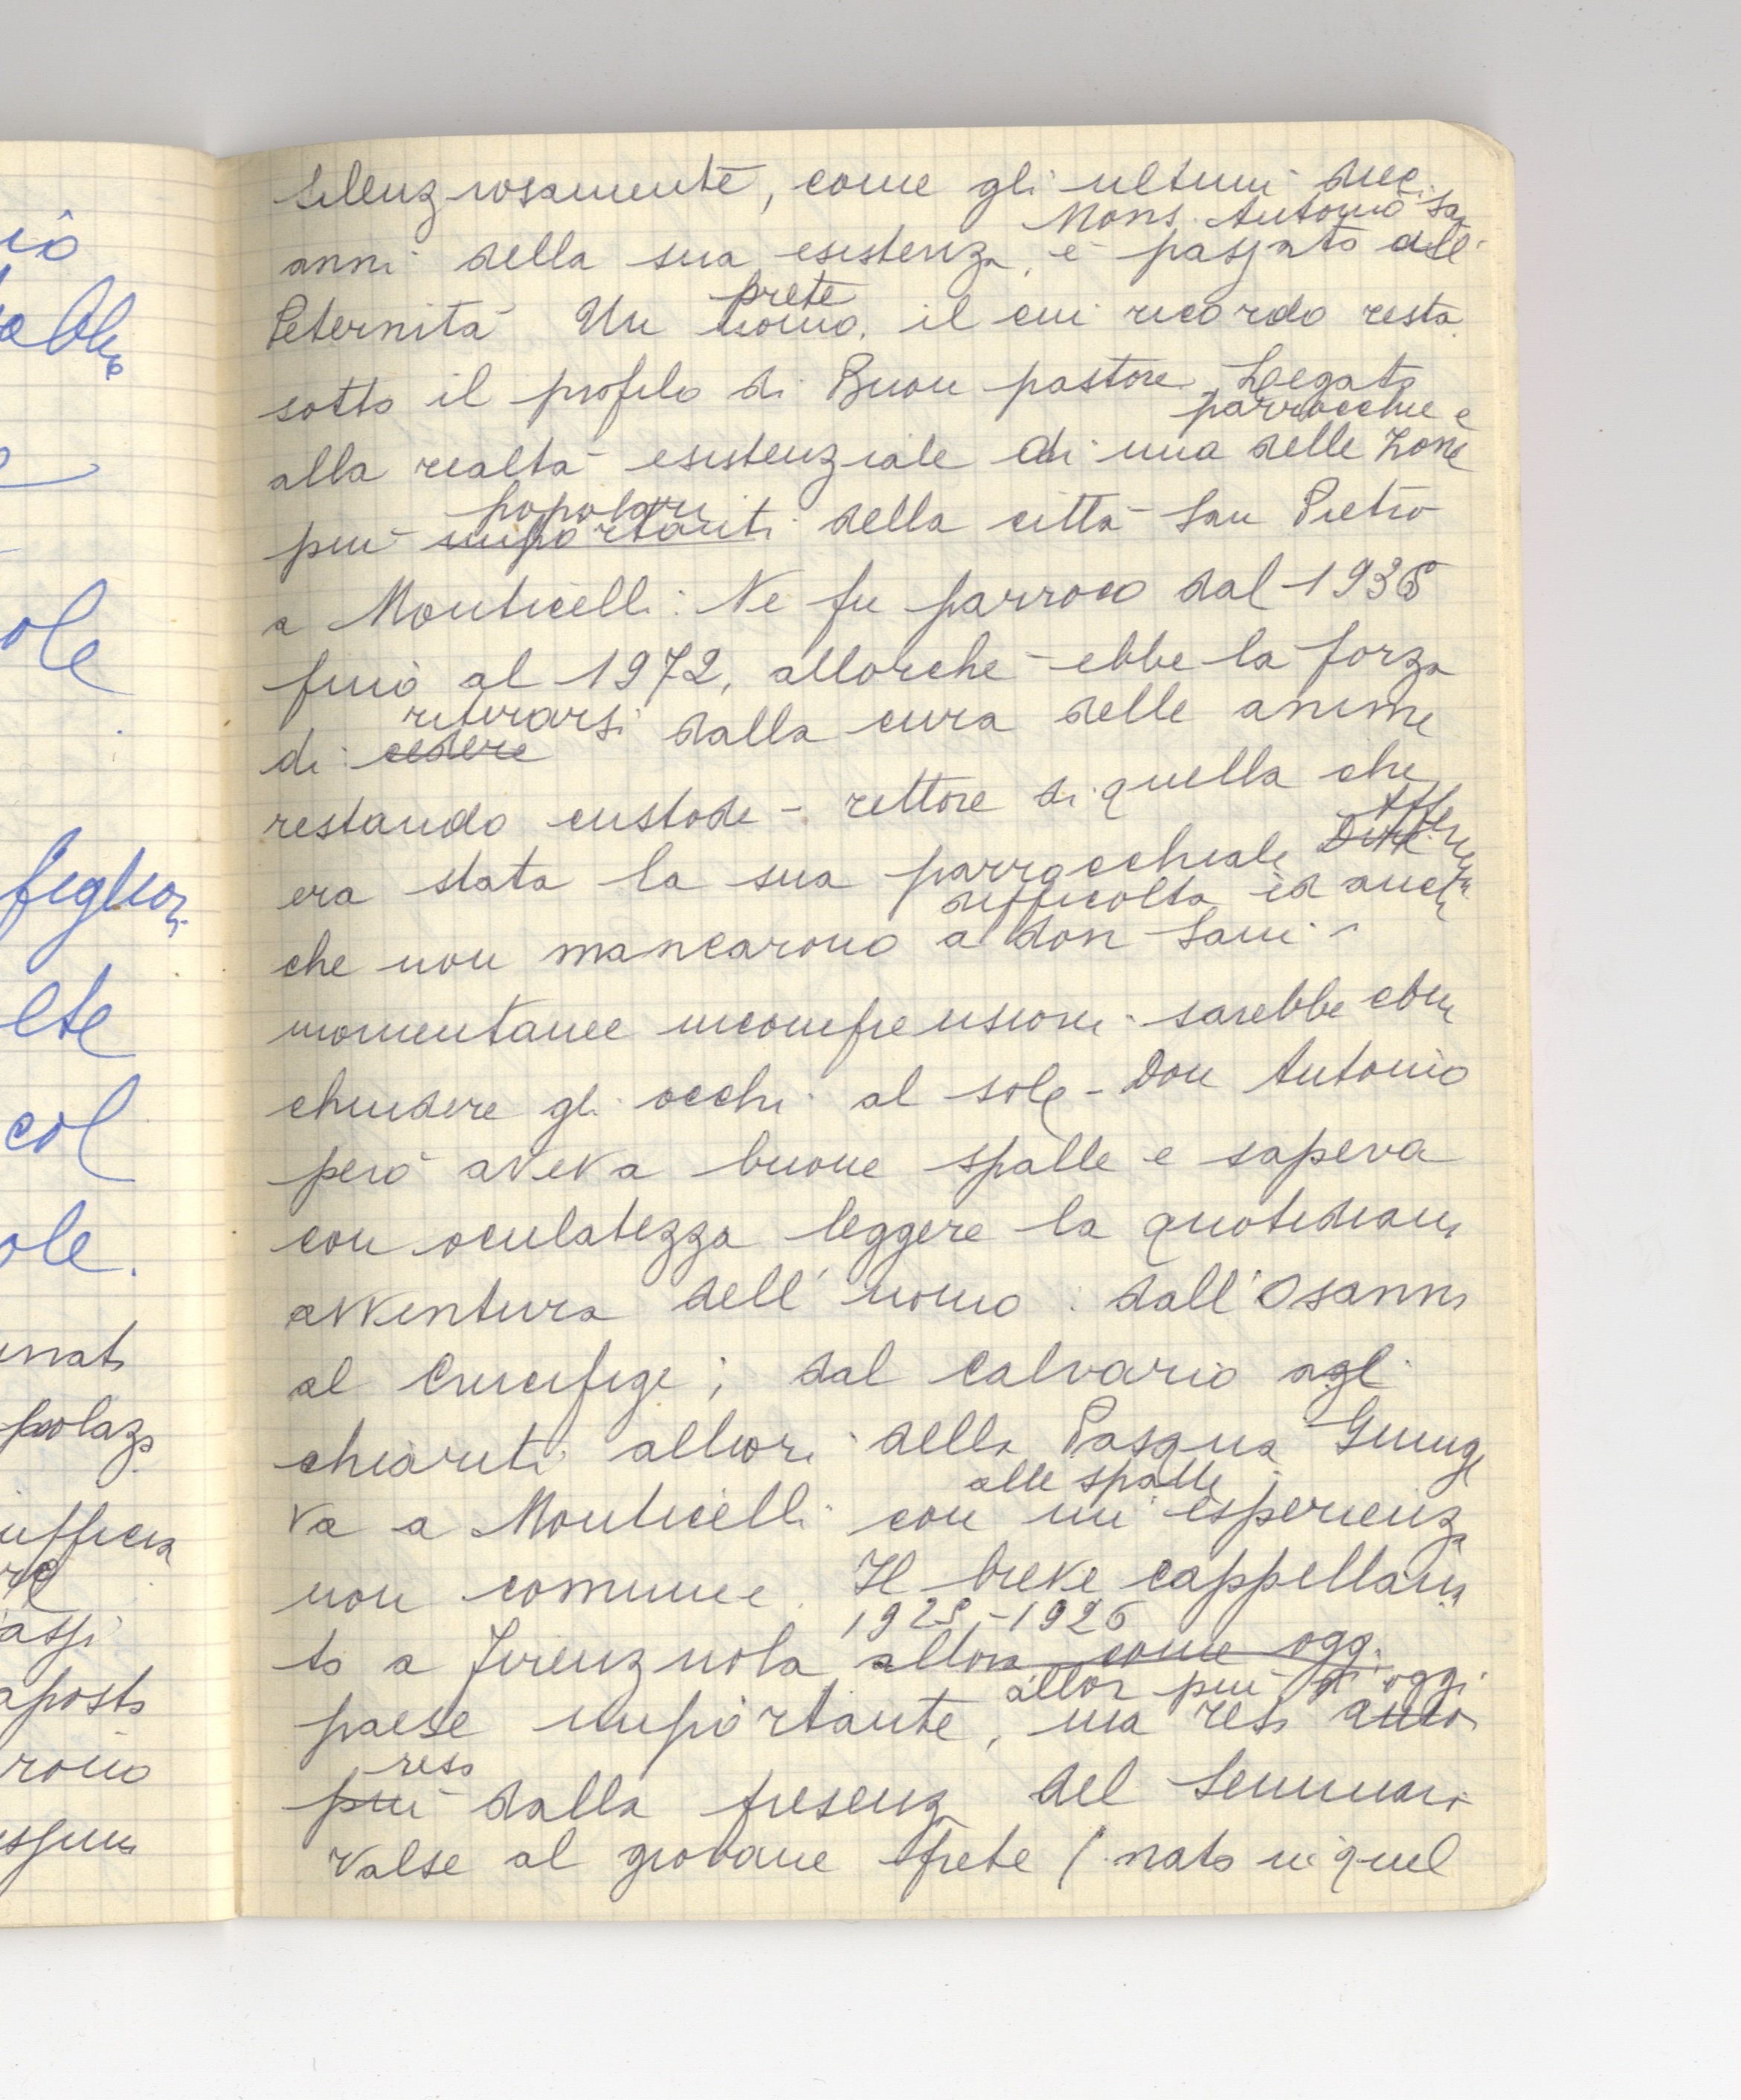 iò
ole
figlior
ete
col
ole.
nato
polaz
uffici
assi
aposto
rono
silenziosamente, come gli ultimi dieci
Mons. Antonio Sa
anni della sua esistenza, è passato all'
l'eternità Un uomo, il cui ricordo resta
prete
sotto il profilo di Buon pastore, Legato
parrocchie e
alla realtà esistenziale di una delle zone
popolari
più importanti della città San Pietro
a Monticelli. Ne fu parroco dal 1936
fino al 1972, allorchè ebbe la forza
ritirarsi
di cedere dalla cura delle anime
restando custode - rettore di quella che
era stata la sua parrocchiale
difficoltà ed anche
che non mancarono a don Sani -
momentanee incomprensioni sarebbe come
chiudere gli occhi al sole - Don Antonio
però aveva buone spalle e sapeva
con oculatezza leggere la quotidiana
avventura dell'uomo: dall'Osanna
al Crucifige; dal calvario agli
chiariti albori della Pasqua Giunge
alle spalle
va a Monticelli con un'esperienza
non comune. Il breve cappellana
1925-1926
to a Firenzuola allora come oggi
allora più di oggi
paese importante, ma reso
reso
più dalla presenza del Seminario
valse al giovane prete (nato in quel